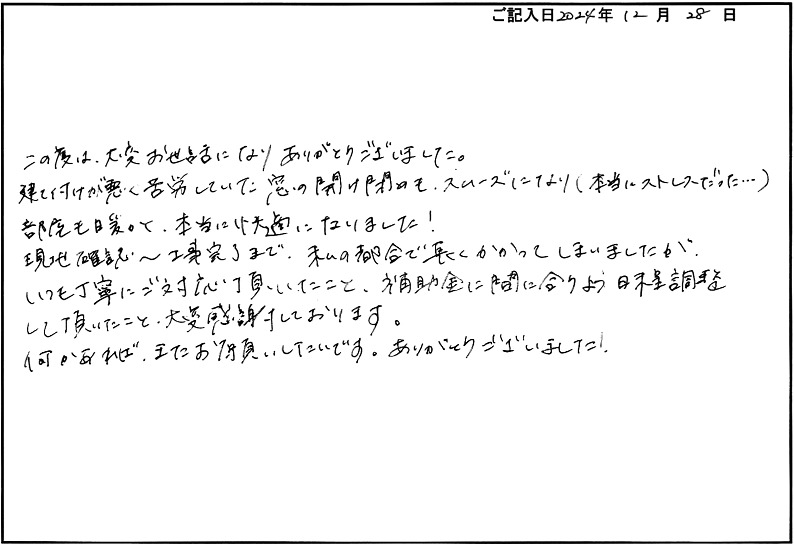 ご記入日2024年 12月 28日
この度は、大変お世話になりありがとうございました。
建て付けが悪く苦労していた窓の開け閉めも、スムーズになり(本当にストレスだった…)
部屋も暖かく、本当に快適になりました!
現地確認〜工事完了まで、私の都合で長くかかってしまいましたが、
いつも丁寧にご対応頂いたこと、補助金に間に合うよう日程調整
して頂いたこと、大変感謝しております。
何かあれば、またお願いしたいです。ありがとうございました!